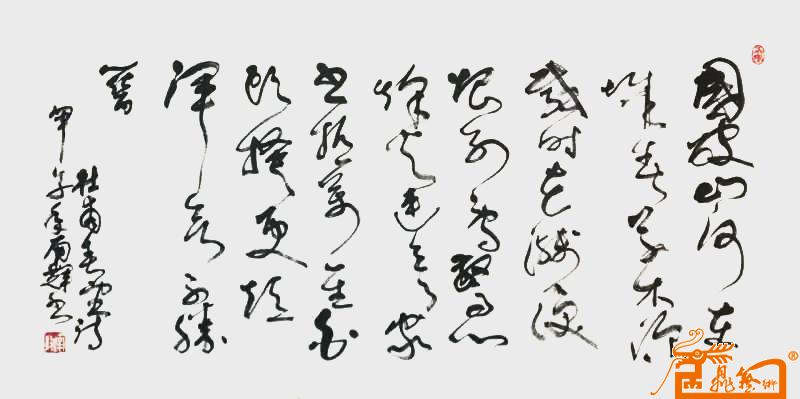 國破山河在
城春草木深
感時花濺淚
恨別鳥驚心
烽火連三月家
書抵萬金白
頭搔更短
渾欲不勝
簪
杜甫春望詩
甲午